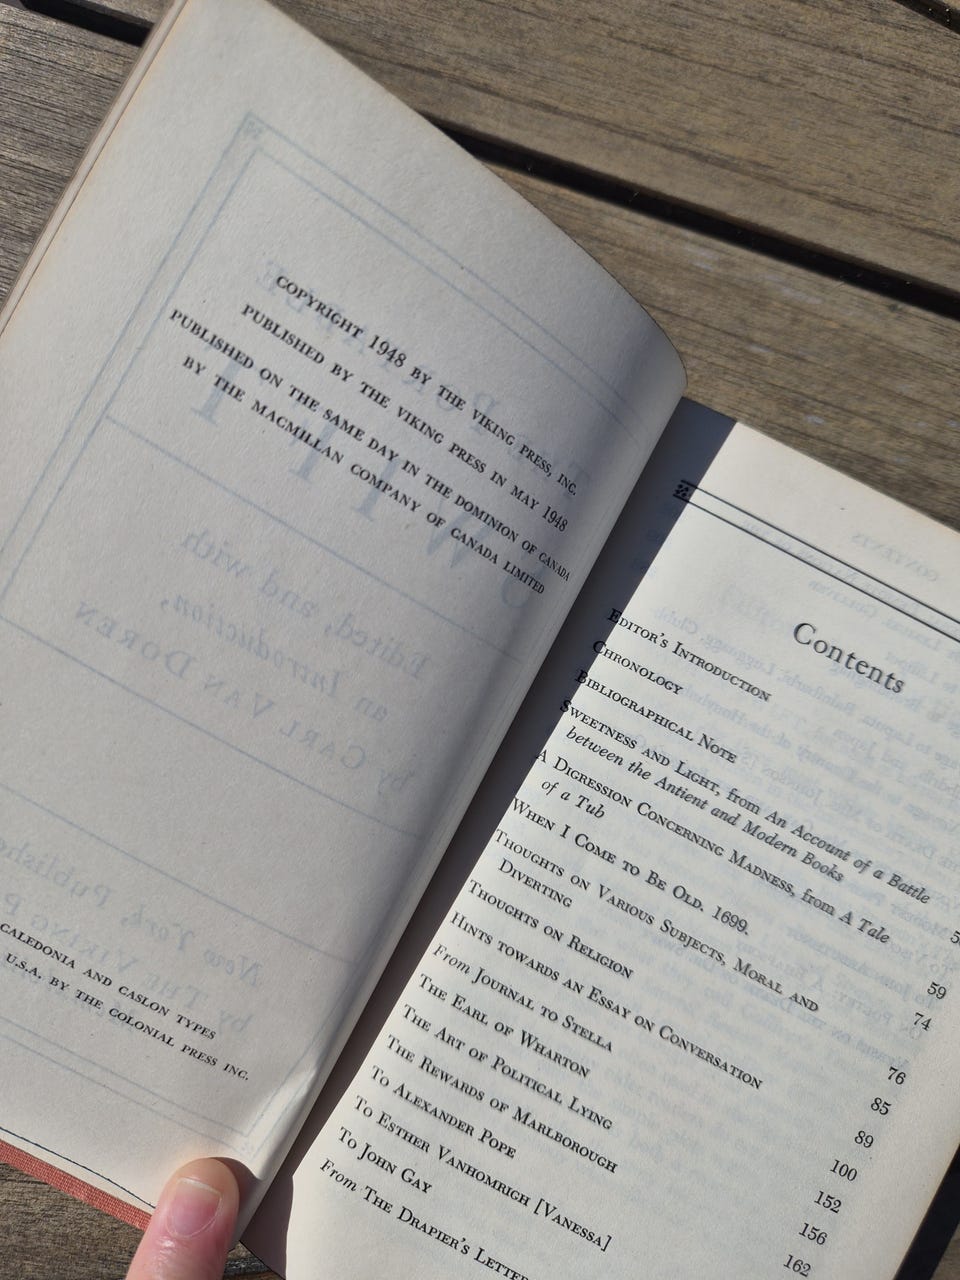 COPYRIGHT 1948 BY THE VIKING PRESS, INC.
PUBLISHED BY THE VIKING PRESS IN MAY 1948
PUBLISHED ON THE SAME DAY IN THE DOMINION OF CANADA
BY THE MACMILLAN COMPANY OF CANADA LIMITED
CALEDONIA AND CASLON TYPES
U.S.A. BY THE COLONIAL PRESS INC.
Contents
EDITOR'S INTRODUCTION
CHRONOLOGY
BIBLIOGRAPHICAL NOTE
SWEETNESS AND LIGHT, from An Account of a Battle
between the Antient and Modern Books
A DIGRESSION CONCERNING MADNESS, from A Tale
of a Tub 59
WHEN I COME TO BE OLD. 1699. 74
THOUGHTS ON VARIOUS SUBJECTS, MORAL AND
DIVERTING 76
THOUGHTS ON RELIGION 85
HINTS TOWARDS AN ESSAY ON CONVERSATION 89
From JOURNAL TO STELLA 100
THE EARL OF WHARTON 152
THE ART OF POLITICAL LYING 156
THE REWARDS OF MARLBOROUGH 162
TO ALEXANDER POPE
TO ESTHER VANHOMRIGH [VANESSA]
TO JOHN GAY
From THE DRAPIER'S LETTER